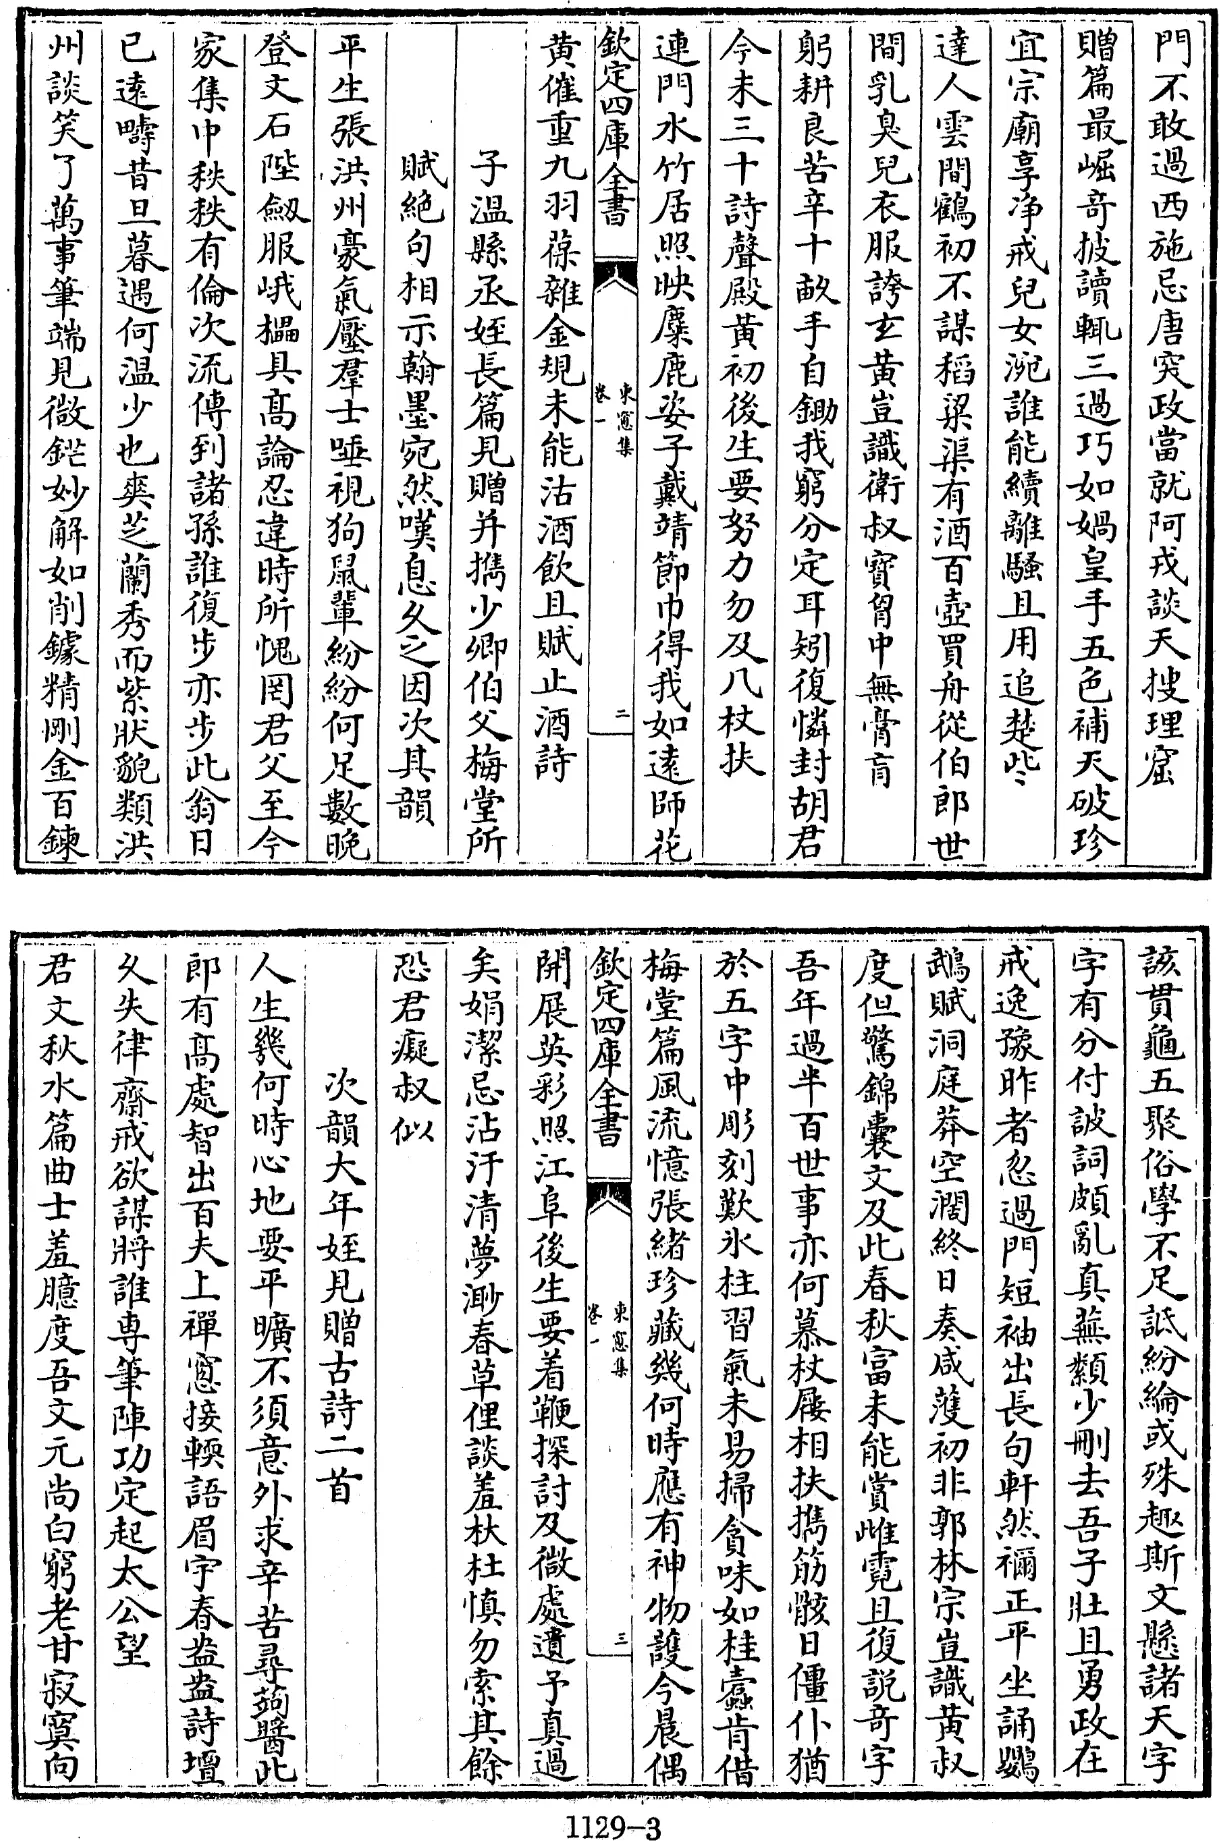 門不敢過西施忌唐突政當就阿戎談天搜理窟
贈篇最崛奇披讀輒三過巧如媧皇手五色補天破珍
宜宗廟享净戒兒女涴誰能續離騷且用追楚些
達人雲間鶴初不謀稻粱渠有酒百壺買舟從伯郎世
間乳臭兒衣服誇玄黄豈識衛叔寳胷中無膏肓
躬耕良苦辛十畝手自鋤我窮分定耳矧復憐封胡君
今未三十詩聲殿黄初後生要努力勿及几杖扶
連門水竹居照映麋鹿姿子戴靖節巾得我如遠師花
欽定四庫全書
東窻集
卷一
二
黄催重九羽葆雜金規未能沽酒飲且賦止酒詩
子温縣丞姪長篇見贈并攜少卿伯父梅堂所
賦絶句相示翰墨宛然嘆息久之因次其韻
平生張洪州豪氣壓羣士唾視狗鼠輩紛紛何足數晚
登文石陛劔服峨櫑具髙論忍違時所愧罔君父至今
家集中秩秩有倫次流傳到諸孫誰復步亦步此翁日
已遠疇昔旦暮遇何温少也爽芝蘭秀而紫狀貌類洪
州談笑了萬事筆端見微鋩妙解如削鐻精剛金百鍊
該貫龜五聚俗學不足詆紛綸或殊趣斯文懸諸天字
字有分付詖詞頗亂真蕪纇少刪去吾子壯且勇政在
戒逸豫昨者忽過門短袖出長句軒然禰正平坐誦鸚
鵡賦洞庭莽空濶終日奏咸頀初非郭林宗豈識黄叔
度但驚錦囊文及此春秋富未能賞雌霓且復説奇字
吾年過半百世事亦何慕杖屨相扶攜筋骸日僵仆猶
於五字中彫刻歎氷柱習氣未易掃貪味如桂蠧肯借
梅堂篇風流憶張緒珍藏幾何時應有神物護今晨偶
欽定四庫全書
東窻集
卷一
三
開展英彩照江阜後生要着鞭探討及微處遺予真過
矣娟潔忌沾汙清夢渺春草俚談羞杕杜慎勿索其餘
恐君癡叔似
次韻大年姪見贈古詩二首
人生幾何時心地要平曠不須意外求辛苦尋蒟醬此
郎有髙處智出百夫上禪窻接輭語眉宇春盎盎詩壇
久失律齋戒欲謀將誰専筆陣功定起太公望
君文秋水篇曲士羞臆度吾文元尚白窮老甘寂寞向
1129-3